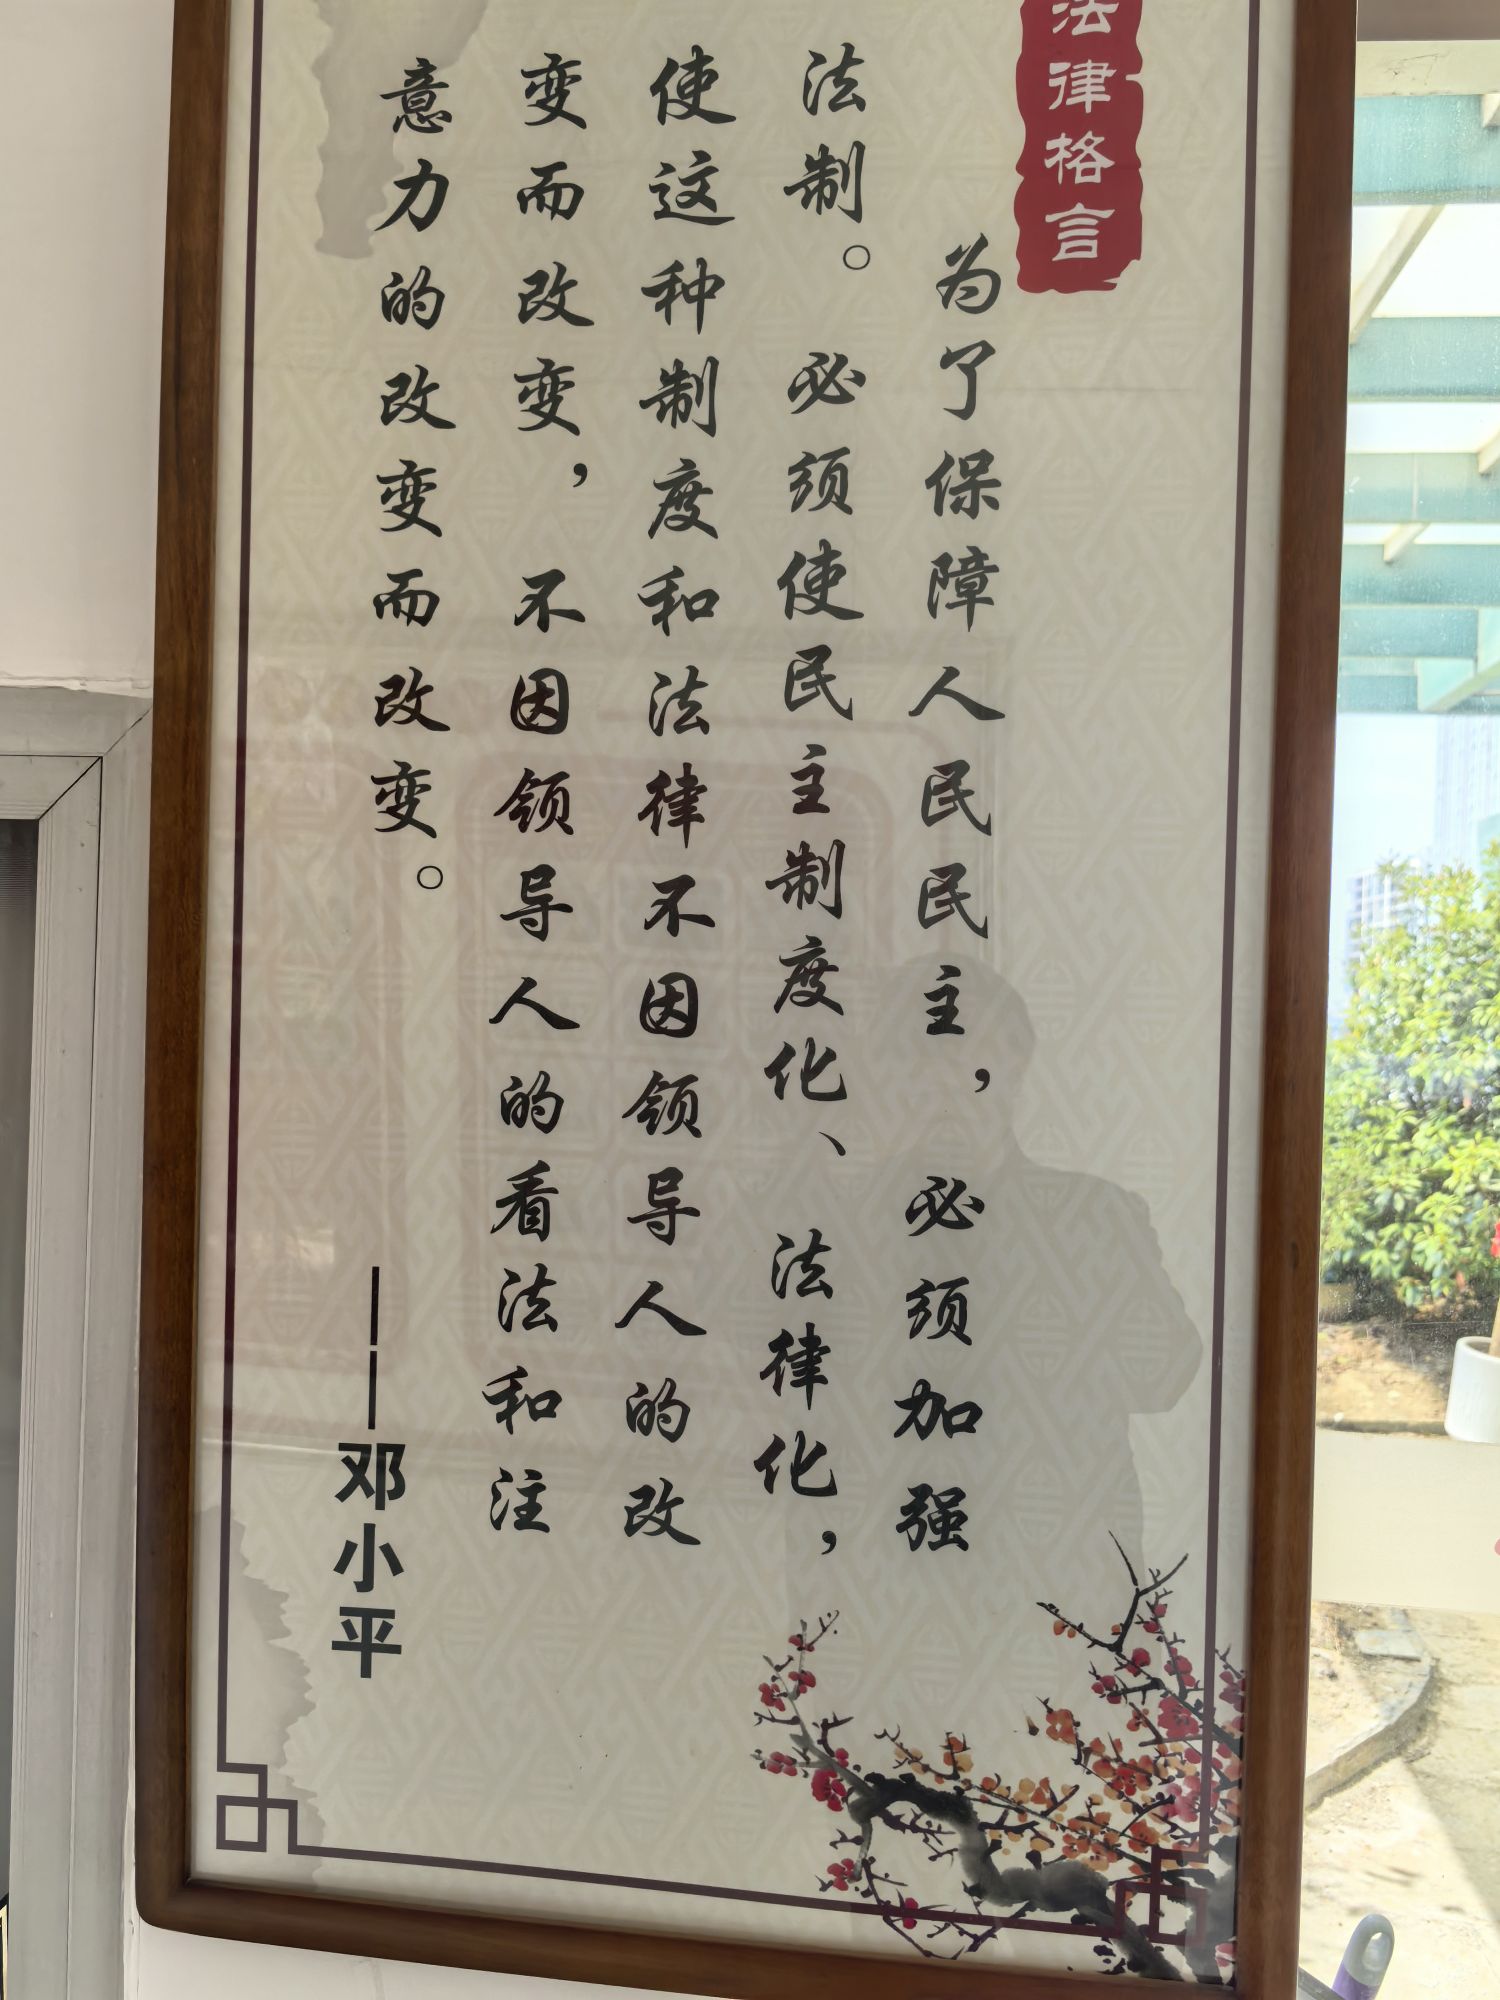 法律格言
为了保障人民民主，必须加强
法制。必须使民主制度化、法律化，
使这种制度和法律不因领导人的改
变而改变，不因领导人的看法和注
意力的改变而改变。
——邓小平